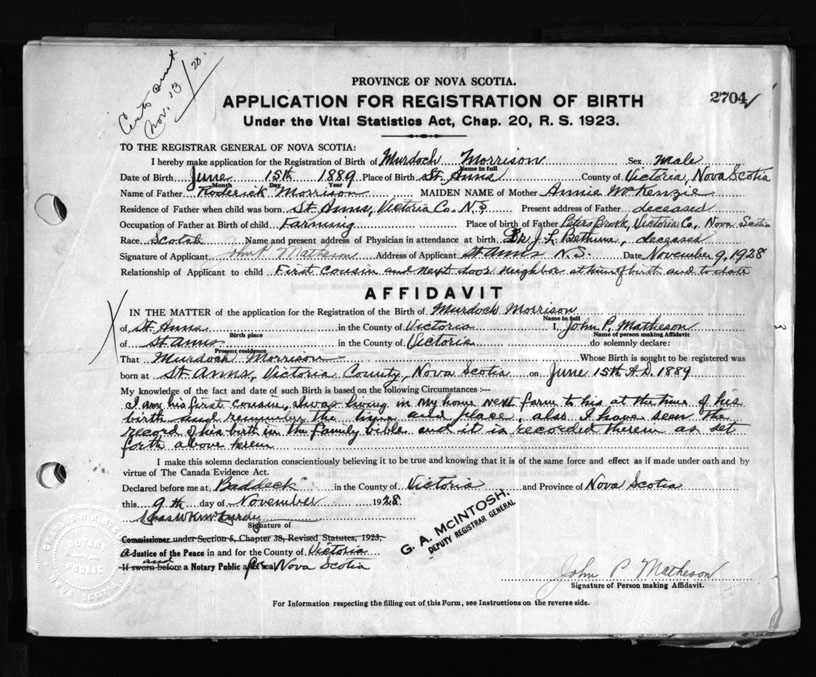 Certs sent
Nov. 13/28.
PROVINCE OF NOVA SCOTIA.
APPLICATION FOR REGISTRATION OF BIRTH
2704/
Under the Vital Statistics Act, Chap. 20, R. S. 1923.
TO THE REGISTRAR GENERAL OF NOVA SCOTIA:
I hereby make application for the Registration of Birth of Murdoch Morrison Sex male
Name in full
Date of Birth June 15th 1889 Place of Birth St. Anns County of Victoria, Nova Scotia
Month Day Year
Name of Father Roderick Morrison MAIDEN NAME of Mother Annie McKenzie
Residence of Father when child was born St. Anns, Victoria Co. N.S. Present address of Father deceased
Occupation of Father at Birth of child Farming Place of birth of Father Peters Brook, Victoria Co., Nova Scotia
Race Scotch Name and present address of Physician in attendance at birth Dr. J. L. Bethune, deceased
Signature of Applicant John P. Matheson Address of Applicant St Anns N.S. Date November 9, 1928
Relationship of Applicant to child First cousin and next door neighbor at time of birth and to date
AFFIDAVIT
IN THE MATTER of the application for the Registration of the Birth of Murdoch Morrison
Name in full
of St. Anns in the County of Victoria I, John P. Matheson
Birth place Name of person making Affidavit
of St Anns in the County of Victoria do solemnly declare:
Present residence
That Murdoch Morrison Whose Birth is sought to be registered was
born at St. Anns, Victoria County, Nova Scotia on June 15th A.D. 1889
My knowledge of the fact and date of such Birth is based on the following Circumstances :—
I am his first cousin, I was living in my home next farm to his at the time of his
birth and remember the time and place, also I have seen the
record of his birth in the family bible and it is recorded therein as set
forth above herein
I make this solemn declaration conscientiously believing it to be true and knowing that it is of the same force and effect as if made under oath and by
virtue of The Canada Evidence Act.
Declared before me at Baddeck in the County of Victoria and Province of Nova Scotia
this 9th day of November 1928.
Signature of
G. A. McINTOSH.
DEPUTY REGISTRAR GENERAL
Commissioner under Section 5, Chapter 38, Revised Statutes, 1923,
a Justice of the Peace in and for the County of Victoria
and
If sworn before a Notary Public affix seal Nova Scotia
John P Matheson
Signature of Person making Affidavit.
For Information respecting the filling out of this Form, see Instructions on the reverse side.
NOTARY
PUBLIC
NOVA SCOTIA